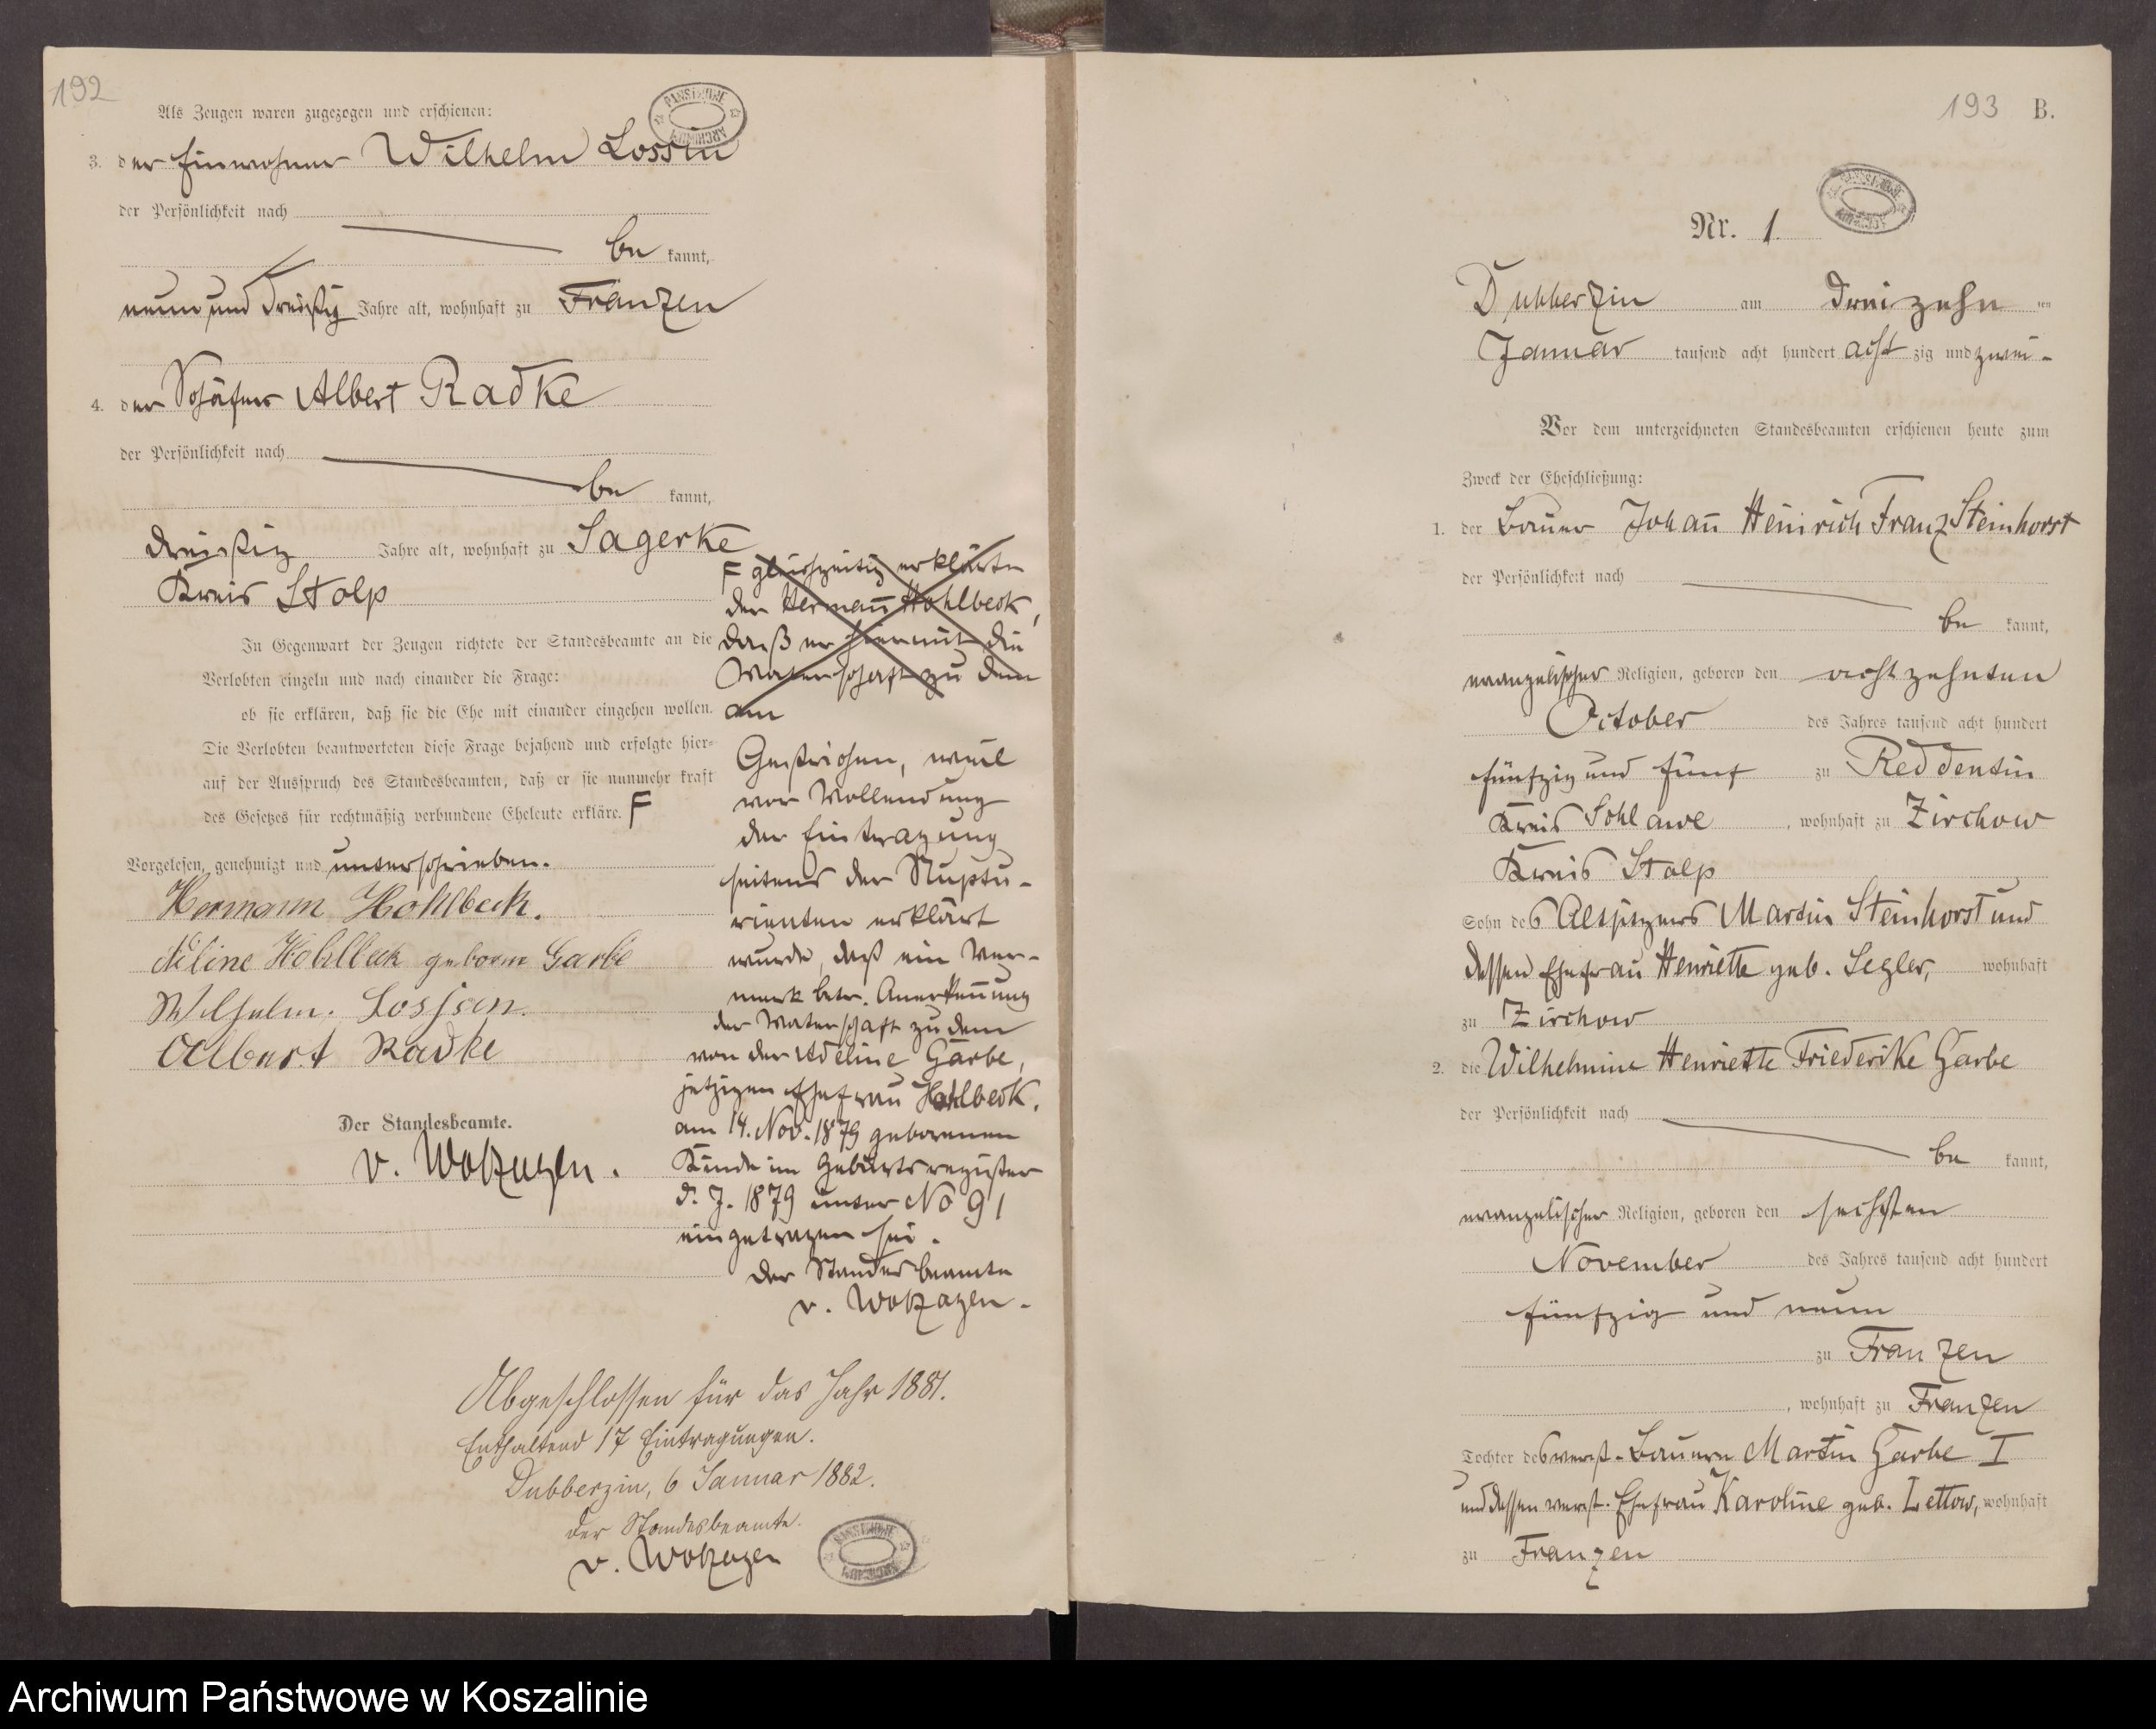 192
Als Zeugen waren zugezogen und erschienen:
3. der Einwohner Wilhelm Lossin
der Persönlichkeit nach
be kannt,
neun und dreißig Jahre alt, wohnhaft zu Franzen
4. der Schäfer Albert Radke
der Persönlichkeit nach
be kannt,
dreißig Jahre alt, wohnhaft zu Sagerke
Kreis Stolp
In Gegenwart der Zeugen richtete der Standesbeamte an die
Verlobten einzeln und nach einander die Frage:
ob sie erklären, daß sie die Ehe mit einander eingehen wollen.
Die Verlobten beantworteten diese Frage bejahend und erfolgte hier-
auf der Ausspruch des Standesbeamten, daß er sie nunmehr kraft
des Gesetzes für rechtmäßig verbundene Eheleute erkläre. F
Vorgelesen, genehmigt und unterschrieben.
Hermann Hohlbeck.
Adeline Hohlbeck geborne Garbe
Wilhelm. Lossien.
Albert Radke
Der Standesbeamte.
v. Woedtke
F gleichzeitig erklärte
der Hermann Hohlbeck,
daß er hiermit die
Vaterschaft zu dem
am
Gestrichen, weil
vor Vollendung
der Eintragung
seitens der Nuptu-
rienten erklärt
wurde, daß ein Ver-
merk betr. Anerkennung
der Vaterschaft zu dem
von der Adeline Garbe,
jetzigen Ehefrau Hohlbeck.
am 14. Nov. 1879 geborenen
Kinde im Geburtsregister
d. J. 1879 unter No 91
eingetragen sei.
Der Standesbeamte
Abgeschlossen für das Jahr 1881.
Enthaltend 17 Eintragungen.
Dubberzin, 6 Januar 1882.
Der Standesbeamte.
193 B.
Nr. 1.
Dubberzin am dreizehn ten
Januar tausend acht hundert acht zig und zwei -
Vor dem unterzeichneten Standesbeamten erschienen heute zum
Zweck der Eheschließung:
1. der Bauer Johann Heinrich Franz Steinhorst
der Persönlichkeit nach
be kannt,
evangelischer Religion, geboren den achtzehnten
October des Jahres tausend acht hundert
fünfzig und fünf zu Reddentin
Kreis Schlawe, wohnhaft zu Zirchow
Kreis Stolp
Sohn des Altsitzers Martin Steinhorst und
dessen Ehefrau Henriette geb. Segler, wohnhaft
zu Zirchow
2. die Wilhelmine Henriette Friederike Garbe
der Persönlichkeit nach
be kannt,
evangelischer Religion, geboren den sechsten
November des Jahres tausend acht hundert
fünfzig und neun
zu Franzen
, wohnhaft zu Franzen
Tochter des verst. Bauern Martin Garbe I
und dessen verst. Ehefrau Karoline geb. Lettow, wohnhaft
zu Franzen
Archiwum Państwowe w Koszalinie